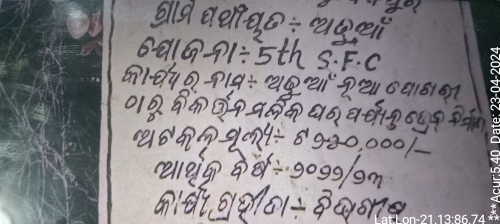 ଗ୍ରାମ ପଞ୍ଚାୟତ :- ଅଢୁଆଁ
ଯୋଜନା :- 5th S.F.C
କାର୍ଯ୍ୟର ନାମ :- ଅଢୁଆଁ ନୂଆ ପୋଖରୀ
ଠାରୁ ବିକର୍ତ୍ତନ ମଲିକ ଘର ପର୍ଯ୍ୟନ୍ତ ଡ୍ରେନ ନିର୍ମାଣ
ଅଟକଳ ମୂଲ୍ୟ :- ଟ ୨୫୦,୦୦୦/-
ଆର୍ଥିକ ବର୍ଷ :- ୨୦୨୨/୨୩
କାର୍ଯ୍ୟ ଗ୍ରହୀତା :- ବିଭାଗୀୟ
Lat:Lon-21.13:86.74
cur:5.40 Date: 23-04-2024